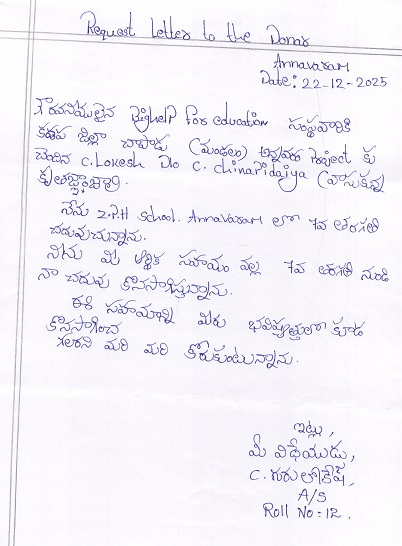 Request Letter to the Donar
Annavaram
Date: 22-12-2025
గౌరవనీయులైన Bighelp for education సంస్థవారికి
కడప జిల్లా చాపాడు (మండలం) అన్నవరం Project కు
చెందిన C.Lokesh D/o C. chinaridaiya (వాసుకున్న
కృతజ్ఞతాంజలి.
నేను Z.P.H School. Annavaram లో 7వ తరగతి
చదువుచున్నాను.
నేను మీ ఆర్థిక సహాయం వల్ల 7వ తరగతి నుండి
నా చదువు కొనసాగిస్తున్నాను.
ఈ సహాయాన్ని మీరు భవిష్యత్తులో కూడ
కొనసాగించ
గలరని మరి మరి కోరుకుంటున్నాను.
ఇట్లు,
మీ విధేయుడు,
C. గురులోకేష్.
A/S
Roll No: 12.